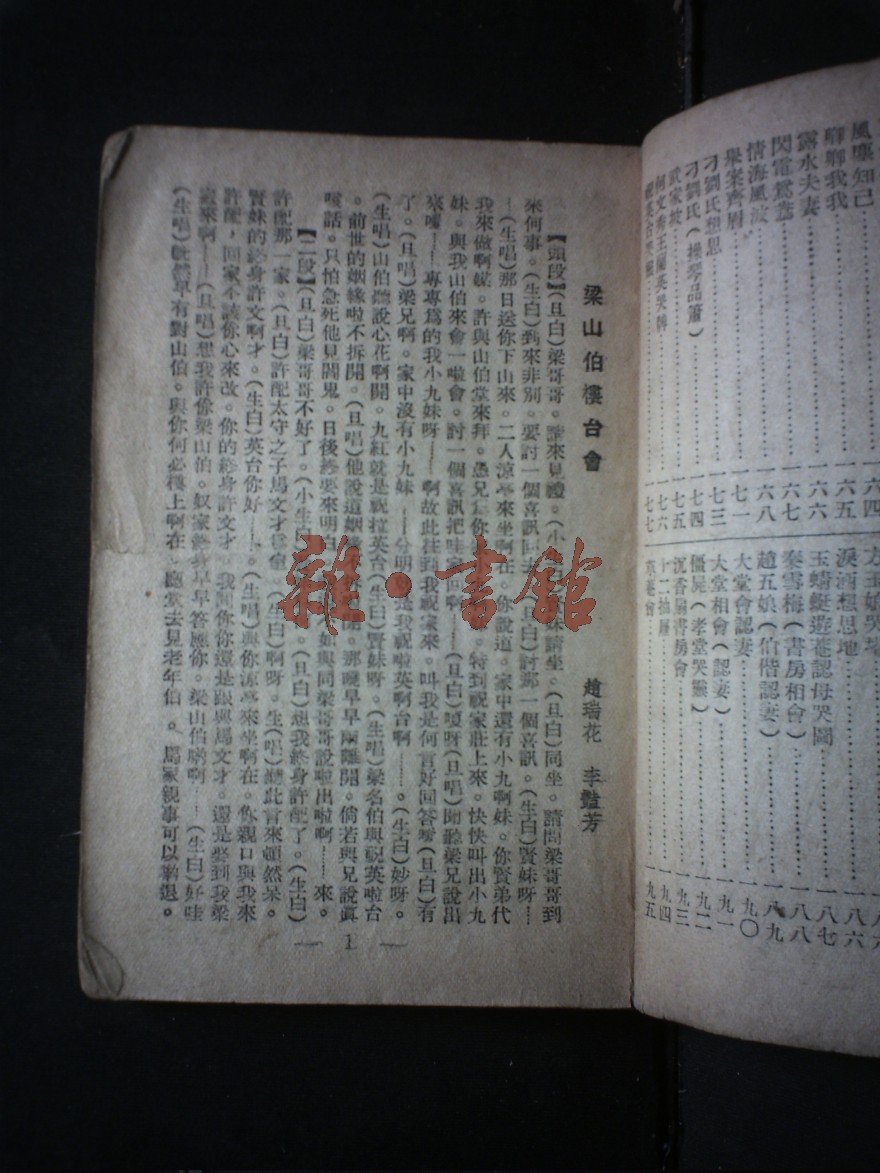 風塵知己 六四
聊聊我我 六五
露水夫妻 六六
閃電鴛鴦 六七
情海風波 六八
舉案齊眉 七一
刁劉氏想思 七三
刁劉氏(操琴品簫) 七四
武家坡 七五
七六
七七
方玉娘哭塔
淚洒想思地 八六
玉蜻蜓遊菴認母哭鬧 八七
秦雪梅(書房相會) 八八
趙五娘(伯偕認妻) 八九
大堂會認妻 九〇
大堂相會(認妻) 九一
僵屍(孝堂哭靈) 九二
沉香扇書房會 九三
十二抽屜 九四
草菴會 九五
梁山伯樓台會 趙瑞花 李豔芳
【頭段】(旦白)梁哥哥。請來見禮。(小生白)賢妹請坐。(旦白)同坐。請問梁哥哥到
來何事。(生白)到來非別。要討一個喜訊回去。(旦白)討那一個喜訊。(生白)賢妹呀……
(生唱)那日送你下山來。二人涼亭來坐啊在。你說道。家中還有小九啊妹。你賢弟代
我來做啊媒。許與山伯堂來拜。愚兄 你 特到祝家莊上來。快快叫出小九
妹。與我山伯來會一啦會。討一個喜訊把哇 回啊。(旦白)嗄呀(旦唱)聞聽梁兄說出
來嚡……專專爲的我小九妹呀……啊故此往到我祝家來。叫我是何言好回答嚡(旦白)有
了。(旦唱)梁兄啊。家中沒有小九妹……分明 是我祝啦英啊台啊……。(生白)妙呀。
(生唱)山伯聽說心花啊開。九紅就是祝拉英台(生白)賢妹呀。(生唱)梁名伯與祝英啦台
。前世的姻緣啦不拆開。(旦唱)他說道姻緣 那曉早早兩離開。倘若與兄說眞
嗄話。只怕急死他見閻鬼。日後終要來明白。 如與同梁哥哥說啦出啦啊……來。
【二段】(旦白)梁哥哥不好了。(小生白) (旦白)想我終身許配了。(生白)
許配那一家。(旦白)許配太守之子馬文才爲 (生白)啊呀。生(唱)聽此言來頓然呆。
賢妹的終身許文啊才。(生白)英台你好……。(生唱)與你涼亭來坐啊在。你親口與我來
許配，回家不該你心來改。你的終身許文才。我問你你還是跟與馬文才。還是娶到我梁
家來啊……(旦唱)想我許你梁山伯。奴家終身早早答應你。梁山伯喲啊……(生白)好哇
(生唱)旣然早有對山伯。與你何必樓上啊在。廳堂去見老年伯。馬家親事可以勒退。
— 1 —
雜·書館